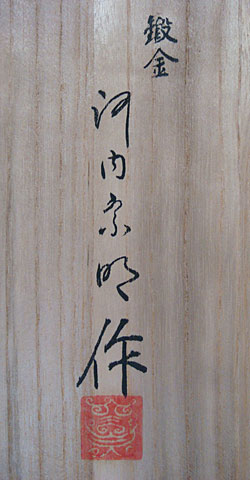 鍛金
河内宗明作